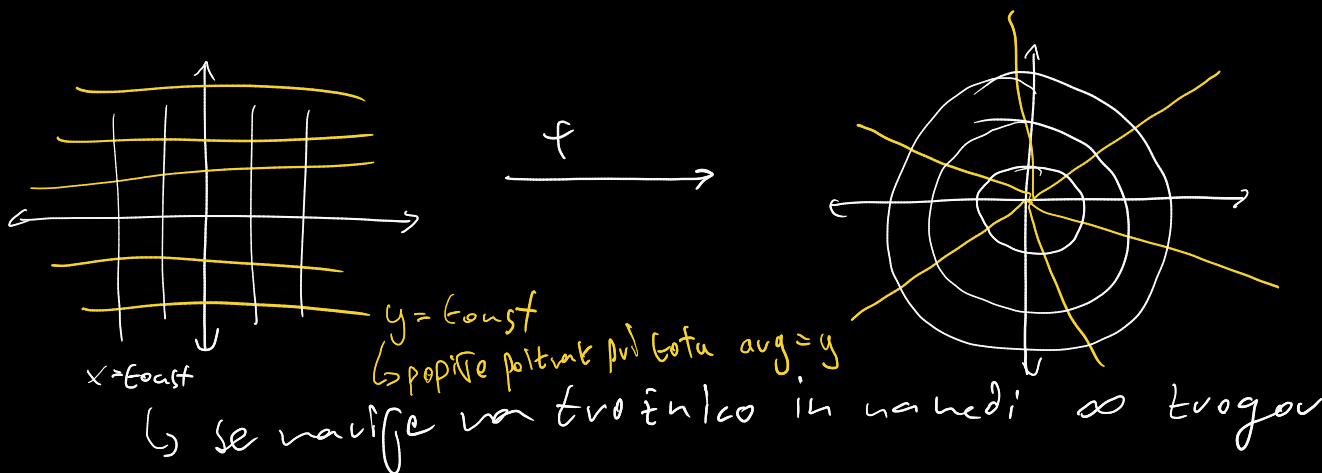 f
y = konst
↳ popiše poltrak pri kotu arg = y
x = konst
↳ se navije na krožnico in naredi ∞ krogov